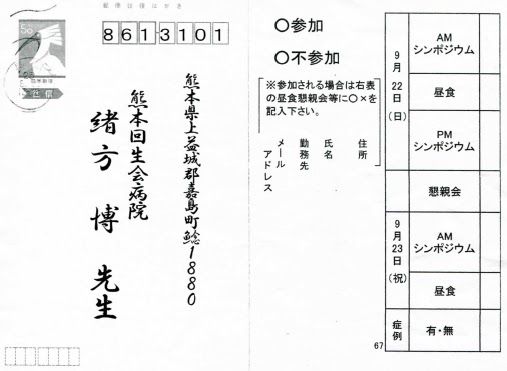 郵便往復はがき
50
日本郵便
往信
8613101
熊本県上益城郡嘉島町鯰1880
熊本回生会病院
緒方 博 先生
〇参加
〇不参加
※参加される場合は右表
の昼食懇親会等に〇×を
記入下さい。
住所
氏名
勤務先
メールアドレス
9月22日(日)
AM
シンポジウム
昼食
PM
シンポジウム
懇親会
9月23日(祝)
AM
シンポジウム
昼食
症例
有・無
67